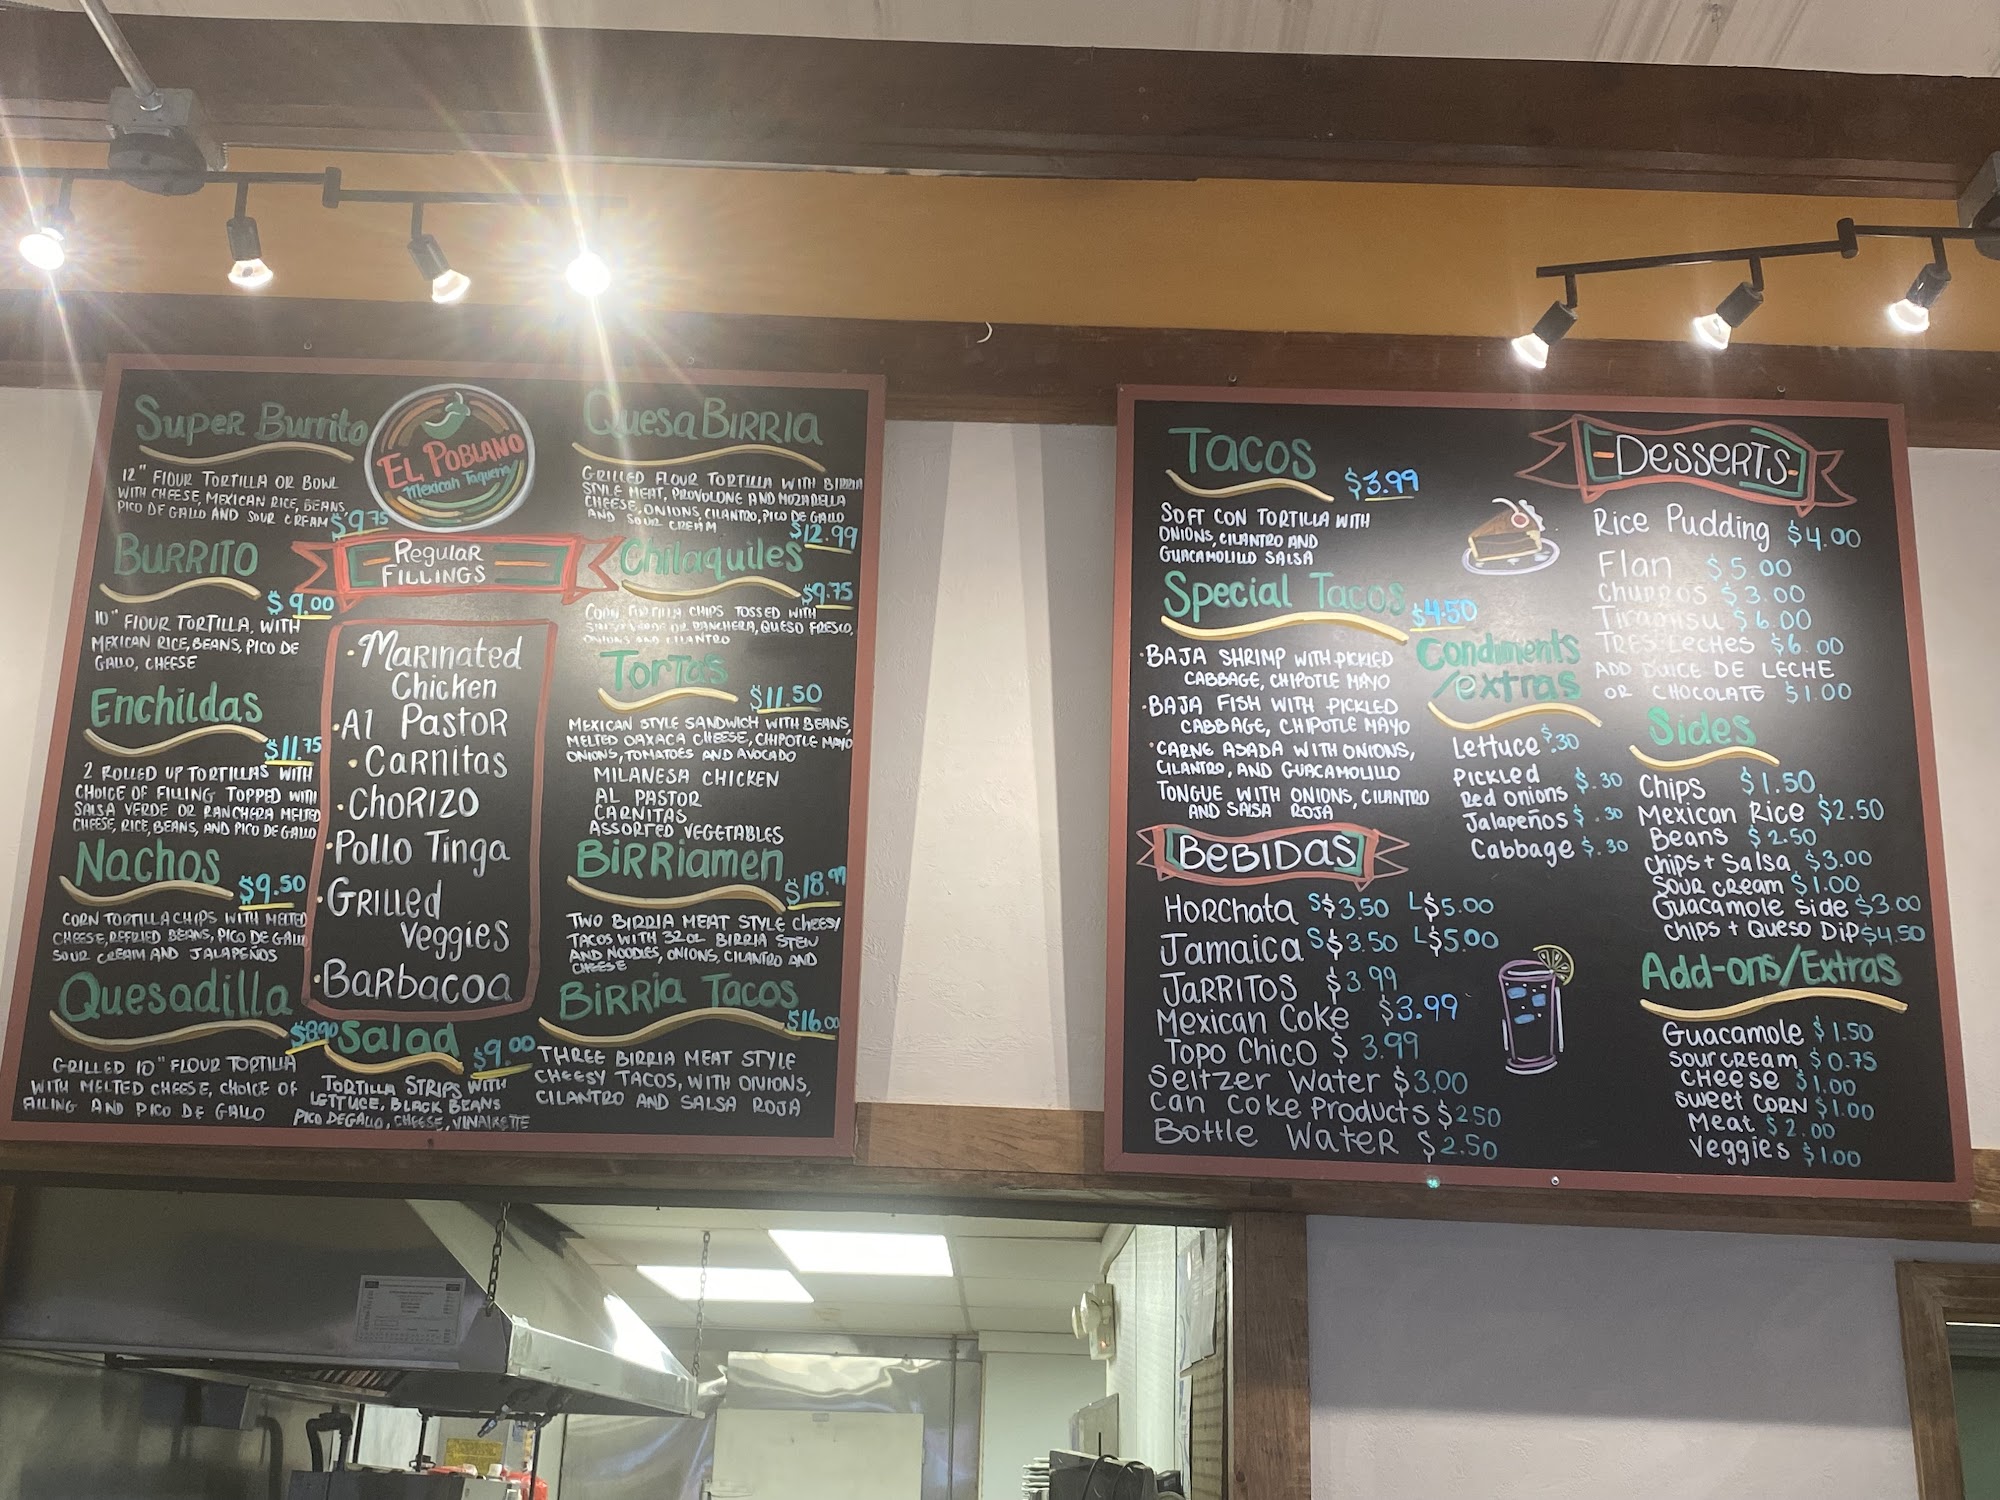 Super Burrito
12" FlOUR TORTILLA OR BOWL
WITH CHEESE, MEXICAN RICE, BEANS,
PICO DE GALLO AND SOUR CREAM $9.75
BURRITO
$9.00
10" FlOUR TORTILLA, WITH
MEXICAN RICE, BEANS, PICO DE
GALLO, CHEESE
Enchildas
$11.75
2 ROLLED UP TORTILLAS WITH
CHOICE OF FILLING TOPPED WITH
SALSA VERDE OR RANCHERA MELTED
CHEESE, RICE, BEANS, AND PICO DE GALLO
Nachos
$9.50
CORN TORTILLA CHIPS WITH MELTED
CHEESE, REFRIED BEANS, PICO DE GALLO
SOUR CREAM AND JALAPEÑOS
Quesadilla
$8.90
GRILLED 10" FLOUR TORTILLA
WITH MELTED CHEESE, CHOICE OF
FILLING AND PICO DE GALLO
EL POBLANO
Mexican Taqueria
Regular
FILLINGS
·Marinated
Chicken
·Al Pastor
·Carnitas
·CHORIZO
·Pollo Tinga
·GRILLED
Veggies
·Barbacoa
Salad
$9.00
TORTILLA STRIPS WITH
LETTUCE, BLACK BEANS
PICO DE GALLO, CHEESE, VINAIRETTE
QuesaBIRRIA
GRILLED FLOUR TORTILLA WITH BIRRIA
STYLE MEAT, PROVOLONE AND MOZARELLA
CHEESE, ONIONS, CILANTRO, PICO DE GALLO
AND SOUR CREAM
$12.99
Chilaquiles
$9.75
CORN TORTILLA CHIPS TOSSED WITH
SALSA VERDE OR RANCHERA, QUESO FRESCO,
ONIONS AND CILANTRO
Tortas
$11.50
MEXICAN STYLE SANDWICH WITH BEANS,
MELTED OAXACA CHEESE, CHIPOTLE MAYO
ONIONS, TOMATOES AND AVOCADO
MILANESA CHICKEN
AL PASTOR
CARNITAS
ASSORTED VEGETABLES
BIRRIAmen
$18.99
TWO BIRRIA MEAT STYLE CHEESY
TACOS WITH 32OZ BIRRIA STEW
AND NOODLES, ONIONS, CILANTRO AND
CHEESE
BIRRIA TACOS
$16.00
THREE BIRRIA MEAT STYLE
CHEESY TACOS, WITH ONIONS,
CILANTRO AND SALSA ROJA
TACOS
$3.99
SOFT CON TORTILLA WITH
ONIONS, CILANTRO AND
GUACAMOLILLO SALSA
Special Tacos $4.50
·BAJA SHRIMP WITH PICKLED
CABBAGE, CHIPOTLE MAYO
·BAJA FISH WITH PICKLED
CABBAGE, CHIPOTLE MAYO
·CARNE ASADA WITH ONIONS,
CILANTRO, AND GUACAMOLILLO
TONGUE WITH ONIONS, CILANTRO
AND SALSA ROJA
BeBIDas
HORchata S$3.50 L$5.00
Jamaica S$3.50 L$5.00
JARRITOS $3.99
Mexican Coke $3.99
Topo Chico $3.99
Seltzer Water $3.00
Can Coke Products $2.50
Bottle Water $2.50
Condiments
/extras
Lettuce $.30
Pickled
Red Onions $.30
Jalapeños $.30
Cabbage $.30
DesseRTS
Rice Pudding $4.00
Flan $5.00
Churros $3.00
Tiramisu $6.00
TRES LeCHES $6.00
ADD DULCE DE LECHE
OR CHOCOLATE $1.00
Sides
Chips $1.50
Mexican Rice $2.50
Beans $2.50
Chips + Salsa $3.00
SOUR CREAM $1.00
Guacamole Side $3.00
Chips + Queso Dip $4.50
Add-ons/Extras
Guacamole $1.50
Sour cream $0.75
CHeese $1.00
Sweet CORN $1.00
Meat $2.00
Veggies $1.00